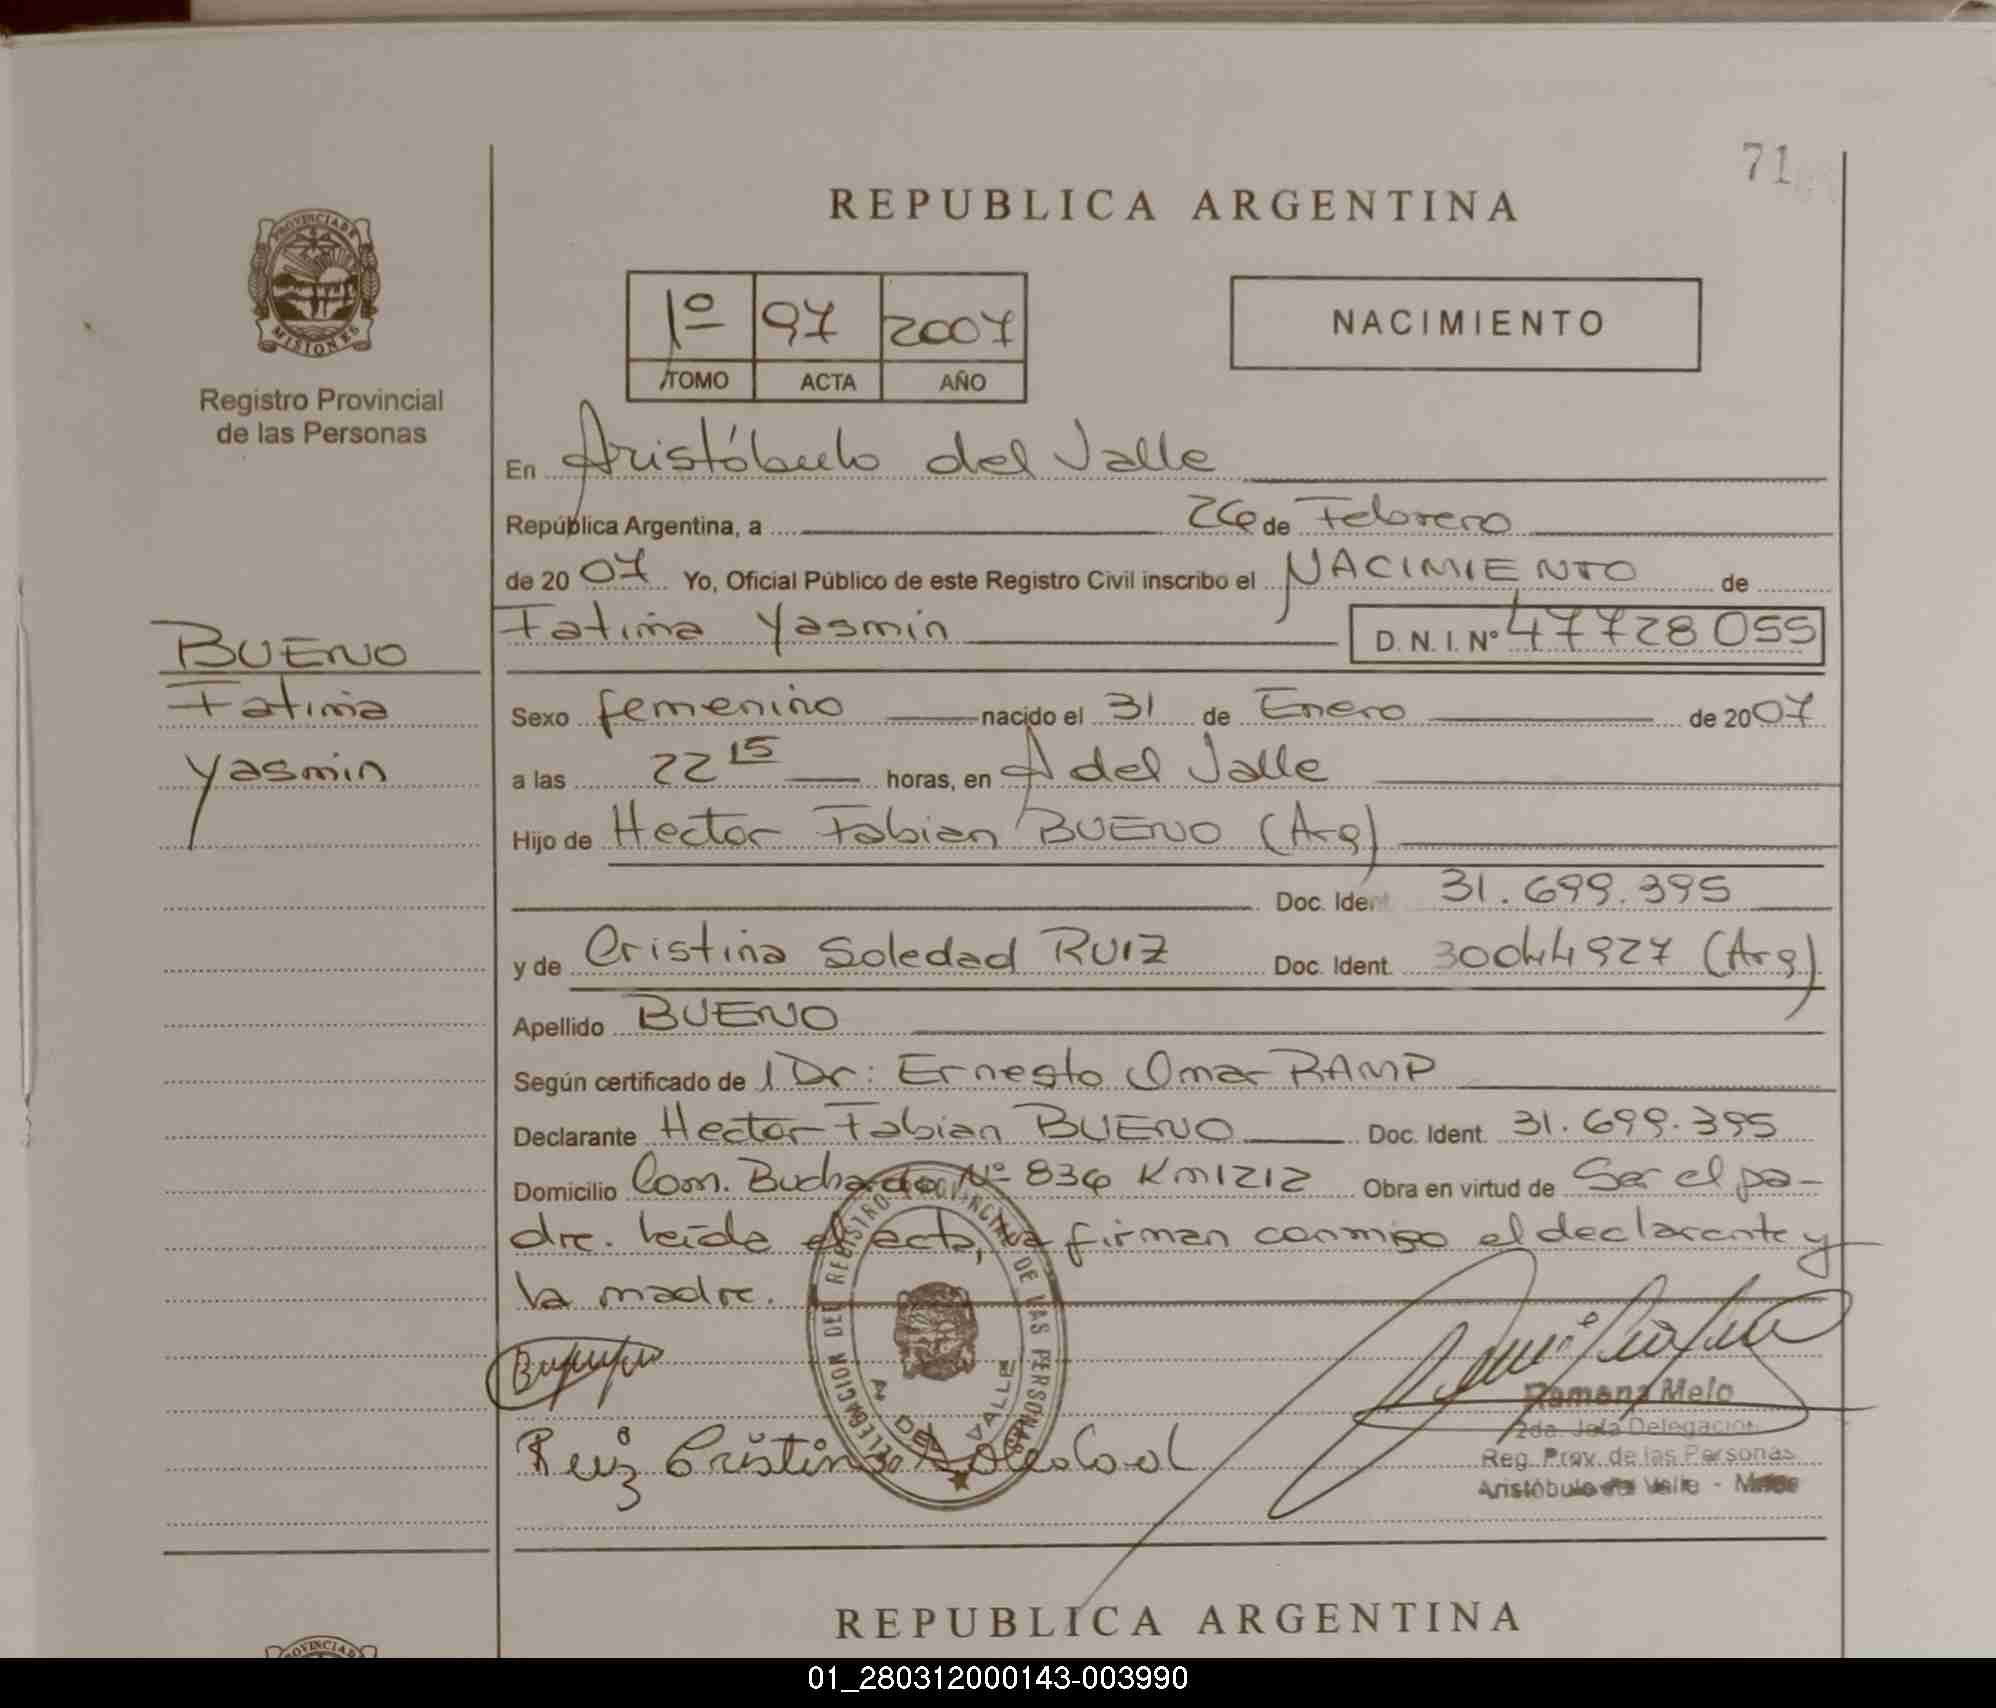 71
REPUBLICA ARGENTINA
PROVINCIA DE MISIONES
Registro Provincial
de las Personas
1º 97 2007
TOMO ACTA AÑO
NACIMIENTO
En Aristóbulo del Valle
República Argentina, a 26 de Febrero
de 2007 Yo, Oficial Público de este Registro Civil inscribo el NACIMIENTO de
Fatima Yasmin D. N. I. Nº 47728055
BUENO
Fatima
Yasmin
Sexo femenino nacido el 31 de Enero de 2007
a las 22 15 horas, en A del Valle
Hijo de Hector Fabian BUENO (Arg)
Doc. Ident 31.699.395
y de Cristina Soledad RUIZ Doc. Ident. 30044927 (Arg)
Apellido BUENO
Según certificado de Dr: Ernesto Omar RAMP
Declarante Hector Fabian BUENO Doc. Ident. 31.699.395
Domicilio Com. Buchardo Nº 836 Km1212 Obra en virtud de Ser el pa-
dre. leida el acta, la firman conmigo el declarante y
la madre.
DELEGACION DEL REGISTRO PROVINCIAL DE LAS PERSONAS
A. DEL VALLE
Ruiz Cristina Soledad
Ramona Melo
2da. Jefa Delegacion
Reg. Prov. de las Personas
Aristóbulo del Valle -
REPUBLICA ARGENTINA
01_280312000143-003990